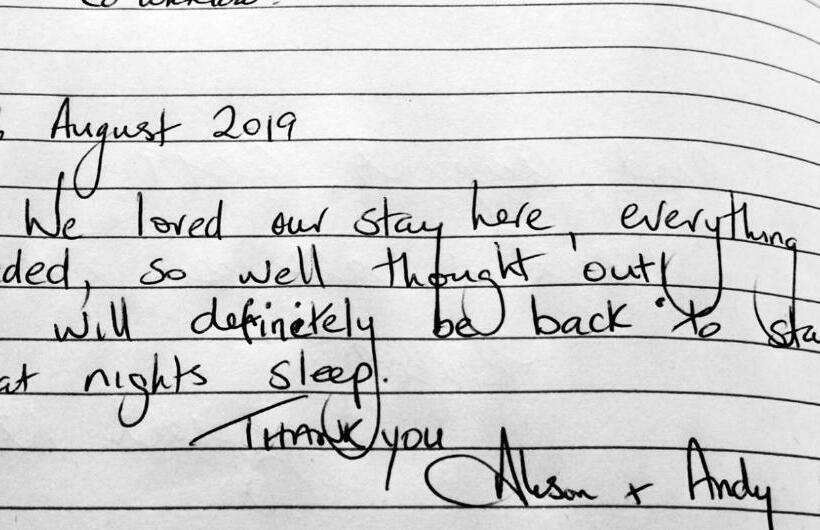 August 2019
We loved our stay here, everything
ded, so well thought out
will definitely be back to sta
at nights sleep.
THANK YOU
Alison + Andy